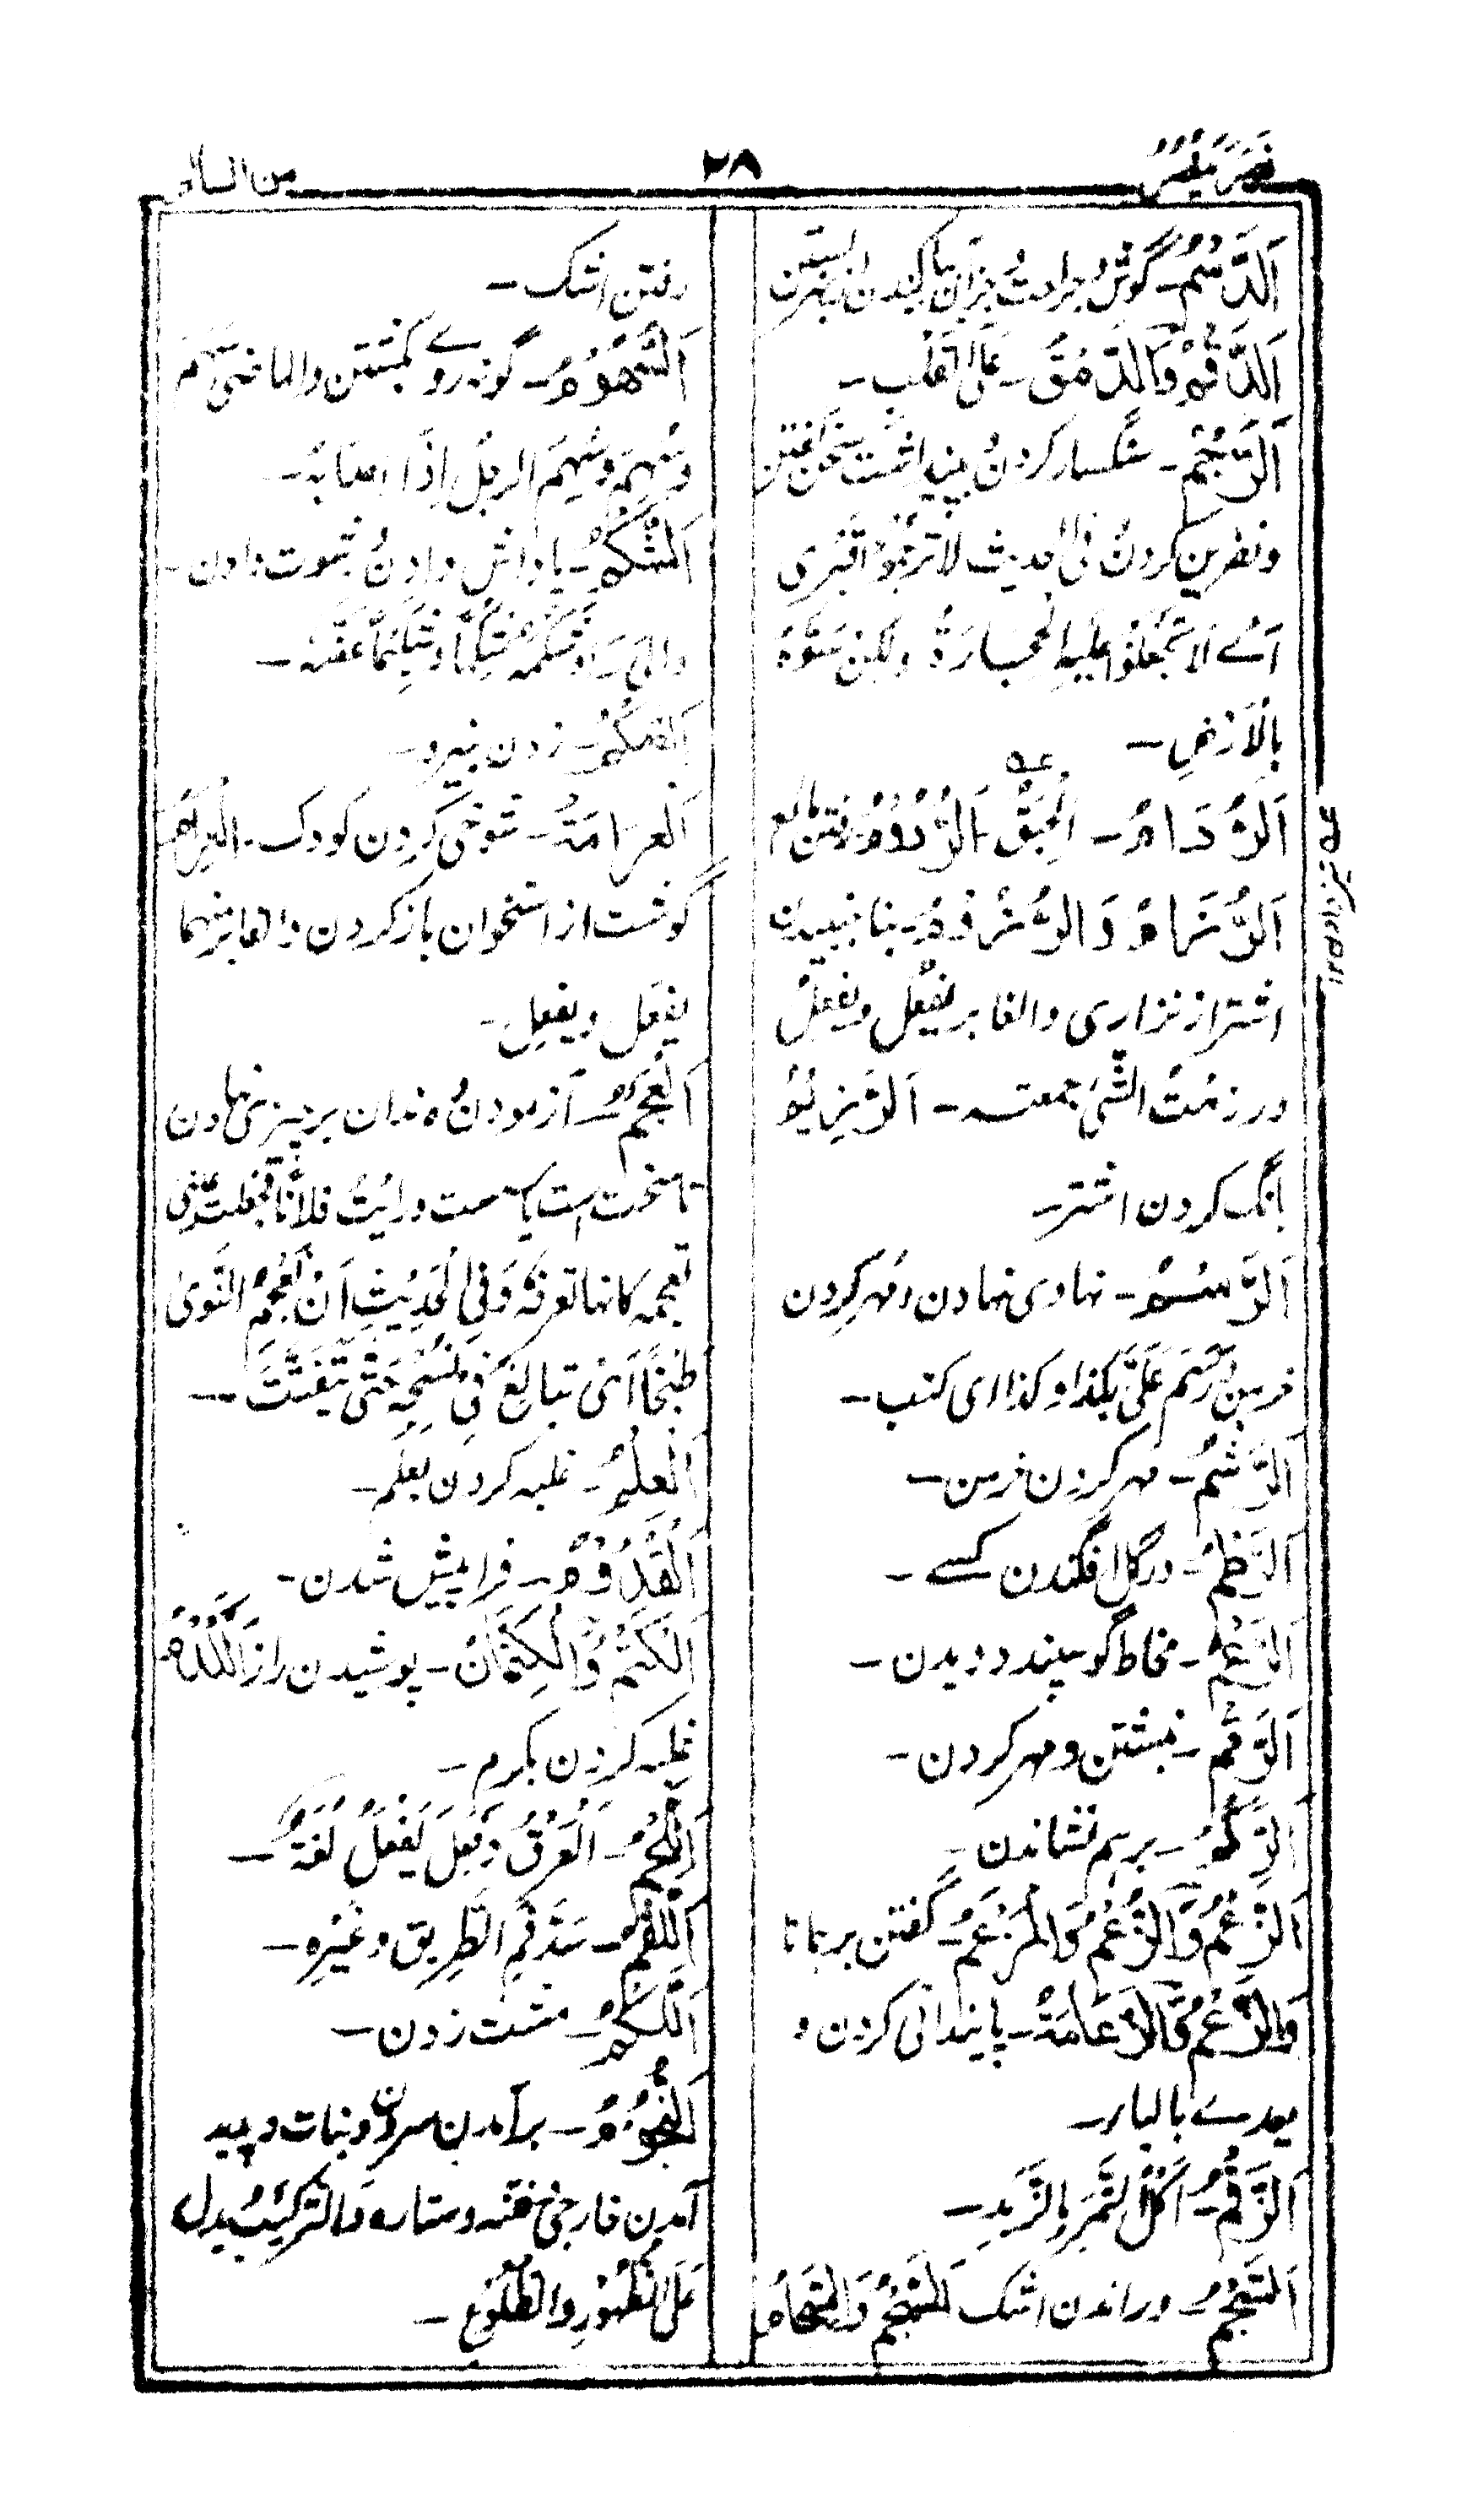 نَصَرَ یَنْصُرُ
۲۸
من السالم
اَلدَّسْمُ۔ گوش جراحت
اَلدَّقْمُ وَالدَّمْقُ۔ عَلَی القَلْب۔
اَلرَّجْمُ۔ سنگسار کردن
و نفرین کردن و فی الحدیث لَا تَرْجُمُوْا قَبْرِی
اَے لَا تَجْعَلُوْا عَلَیْهِ الْحِجَارَةَ ولکن سَوُّوْهُ
بِالْاَرْضِ۔
اَلرُّدَامُ۔ اَلْحَبْقُ اَلرُّدُوْمُ
اَلرُّزَامُ وَالرُّزُوْمُ۔ ناجنبیدن
اشتر از نزاری والغابر یَفْعُل ویَفْعِلُ
ورزمتُ الشَّیْءَ جمعته۔ اَلرَّزِیْمُ
بانگ کردن اشتر۔
اَلرَّسْمُ۔ نهادی نهادن و مُهر کردن
خرمن ورَسَمَ عَلَیَّ بکذا و کذا ای کتب۔
اَلرَّشْمُ۔ مهر کردن خرمن۔
اَلرَّطْمُ۔ در گل افگندن کسے۔
اَلرَّعْمُ۔ مخاط گوسپند دویدن۔
اَلرَّقْمُ۔ نبشتن و مهر کردن۔
اَلرَّكْمُ۔ برهم نشاندن۔
اَلزَّعْمُ وَالزُّعْمُ وَالْمَزْعَمُ۔ گفتن
وَالزَّعْمُ وَالزَّعَامَةُ۔ پایندانی کردن و
یعدے بالباء۔
اَلزَّقْمُ۔ اَکْلُ التَّمْرِ بِالزُّبْدِ۔
اَلسَّجْمُ۔ و راندن اشک اَلسُّجُوْمُ وَالسِّجَامُ
رفتن اشک۔
اَلسُّهُوْمُ۔ گونه روے بگشتن والماضی سَهَمَ
وسَهُمَ وسُهِمَ الرجُلُ اِذَا اصَابَهُ۔
اَلشَّكْمُ۔ پاداش دادن و رشوت دادن۔
اَلصَّكْمُ۔ زدن بنیرو۔
اَلْعَرَامَةُ۔ شوخی کردن کودک۔ اَلْعَرْمُ
گوشت از استخوان باز کردن والغابر منهما
یفعُل ویفعِل۔
اَلْعَجْمُ۔ آزمودن و دندان بر چیزی نهادن
تا سخت است یا سست ورایتُ فلانا فجعلت عینی
تعجمه کانها تعرفه وَفِی الْحَدِیْثِ اَنْ نَعْجُمَ النَّوٰی
طَبْخًا اَیْ تبالغ فی نُضْجِهٖ حَتّٰی یَتَفَتَّتَ۔
اَلْعِلْمُ۔ غلبه کردن بعلم۔
اَلْقُدُوْمُ۔ فراپیش شدن۔
اَلْكَتْمُ وَالْكِتْمَانُ۔ پوشیدن راز اَلْكَرْمُ
غلبه کردن بکرم۔
اَللَّحْمُ۔ اَلْعَرْقُ وَفَعَلَ یَفْعَلُ لُغَةٌ۔
اَللَّقْمُ۔ سَدُّ فَمِ الطَّرِیق وغیره۔
اَللَّكْمُ۔ مشت زدن۔
اَلنُّجُوْمُ۔ برآمدن سرون و نبات و پدید
آمدن خارجی و فتنه و ستاره وَالتَّرکیبُ یدل
عَلَی الظُّهُوْرِ وَالطُّلُوْعِ۔